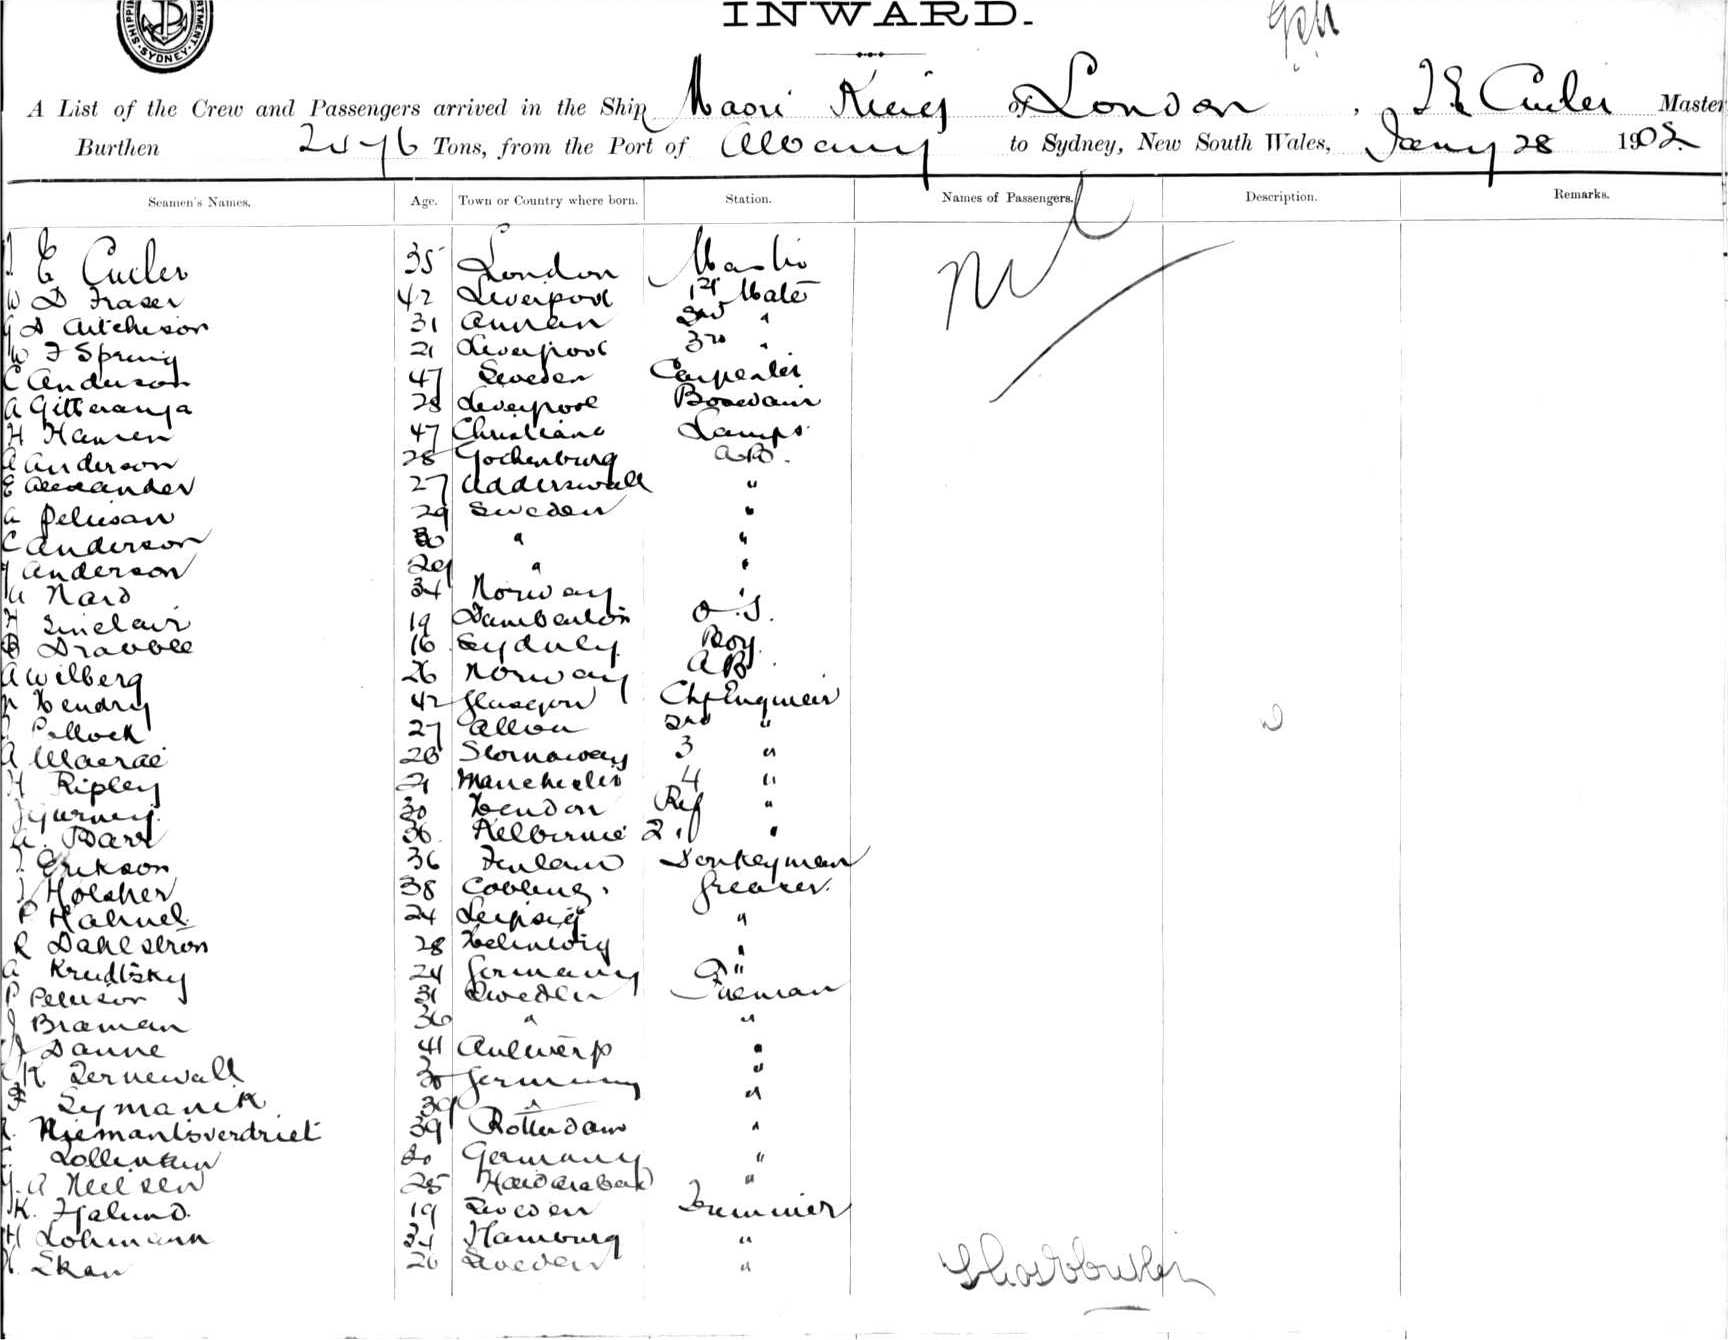 SHIPPING DEPARTMENT. SYDNEY.
INWARD.
A List of the Crew and Passengers arrived in the Ship Maori King of London, J E Cutler Master
Burthen 2476 Tons, from the Port of Albany to Sydney, New South Wales, Jany 28 1902
Seamen's Names. Age. Town or Country where born. Station. Names of Passengers. Description. Remarks.
J E Cutler 35 London Master Nil
W D Fraser 42 Liverpool 1st Mate
G D Aitchison 31 Annan 2nd "
W F Spring 21 Liverpool 3rd "
C Anderson 47 Sweden Carpenter
A Gitteranja 28 Liverpool Boswain
H Hansen 47 Christiana Lamps
A Anderson 28 Gothenburg A.B.
E Alexander 27 Udderswall "
A Petersan 29 Sweden "
C Anderson 30 " "
Anderson 29 " "
A Nard 34 Norway "
H Sinclair 19 Dumbarton O.S.
Drabble 16 Sydney Boy
A Wilberg 26 Norway AB
Hendry 42 Glasgow Chf Engineer
Pollock 27 Alloa 2nd "
A Macrae 28 Stornoway 3 "
H Ripley 21 Manchester 4 "
J Gurney 30 Hendon Ref "
A. Barr 36 Kelburnie 2. "
Erikson 36 Finland Donkeyman
J Holsher 38 Coblenz. Greaser.
P Hahnel 24 Leipsig "
R Dahlstron 28 Helsn "
A Krudtsky 24 Germany "
P Peterson 31 Sweden Fireman
J Braman 36 " "
J Danne 41 Antwerp "
K Zernewall 30 Germany "
F Zymanik 39 " "
Niemantsverdriet 39 Rotterdam "
30 Germany "
A Neilsen 25 "
K. Fjalund. 19 Sweden Trimmer
H Lohmann 34 Hamburg "
Ekan 20 Sweden "